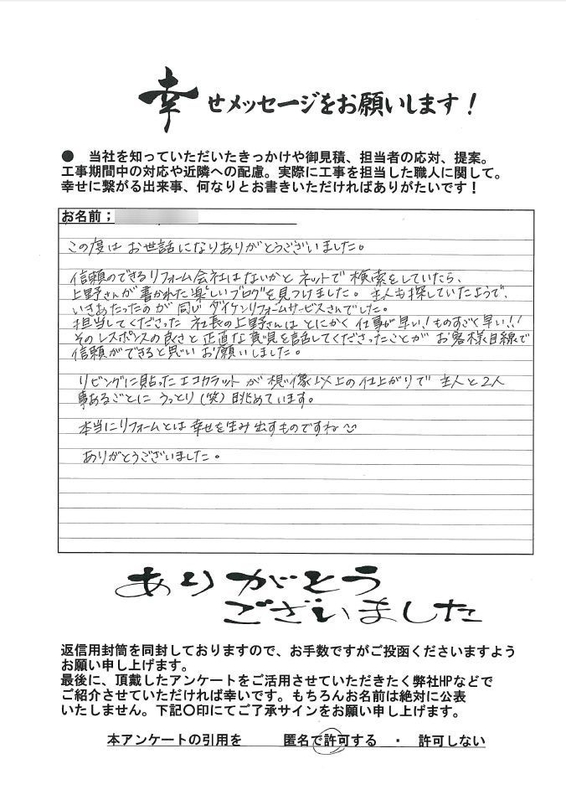 幸せメッセージをお願いします！
●　当社を知っていただいたきっかけや御見積、担当者の応対、提案。
工事期間中の対応や近隣への配慮。実際に工事を担当した職人に関して。
幸せに繋がる出来事、何なりとお書きいただければありがたいです！
お名前；
この度は お世話になりありがとうございました。
信頼のできるリフォーム会社はないかと ネットで 検索をしていたら、
上野さんが書かれた楽しいブログを見つけました。主人も探していたようで、
いきあたったのが 同じ ダイケンリフォームサービスさんでした。
担当してくださった 社長の上野さんは とにかく 仕事が早い！ものすごく早い！！
そのレスポンスの良さと 正直な意見を話してくださったことが お客様目線で
信頼ができると思い お願いしました。
リビングに貼ったエコカラットが 想像以上の仕上がりで 主人と2人
事あるごとに うっとり（笑）眺めています。
本当にリフォームとは 幸せを生み出すものですね
ありがとうございました。
ありがとう
ございました
返信用封筒を同封しておりますので、お手数ですがご投函くださいますよう
お願い申し上げます。
最後に、頂戴したアンケートをご活用させていただきたく弊社HPなどで
ご紹介させていただければ幸いです。もちろんお名前は絶対に公表
いたしません。下記〇印にてご了承サインをお願い申し上げます。
本アンケートの引用を　　匿名で許可する　・　許可しない